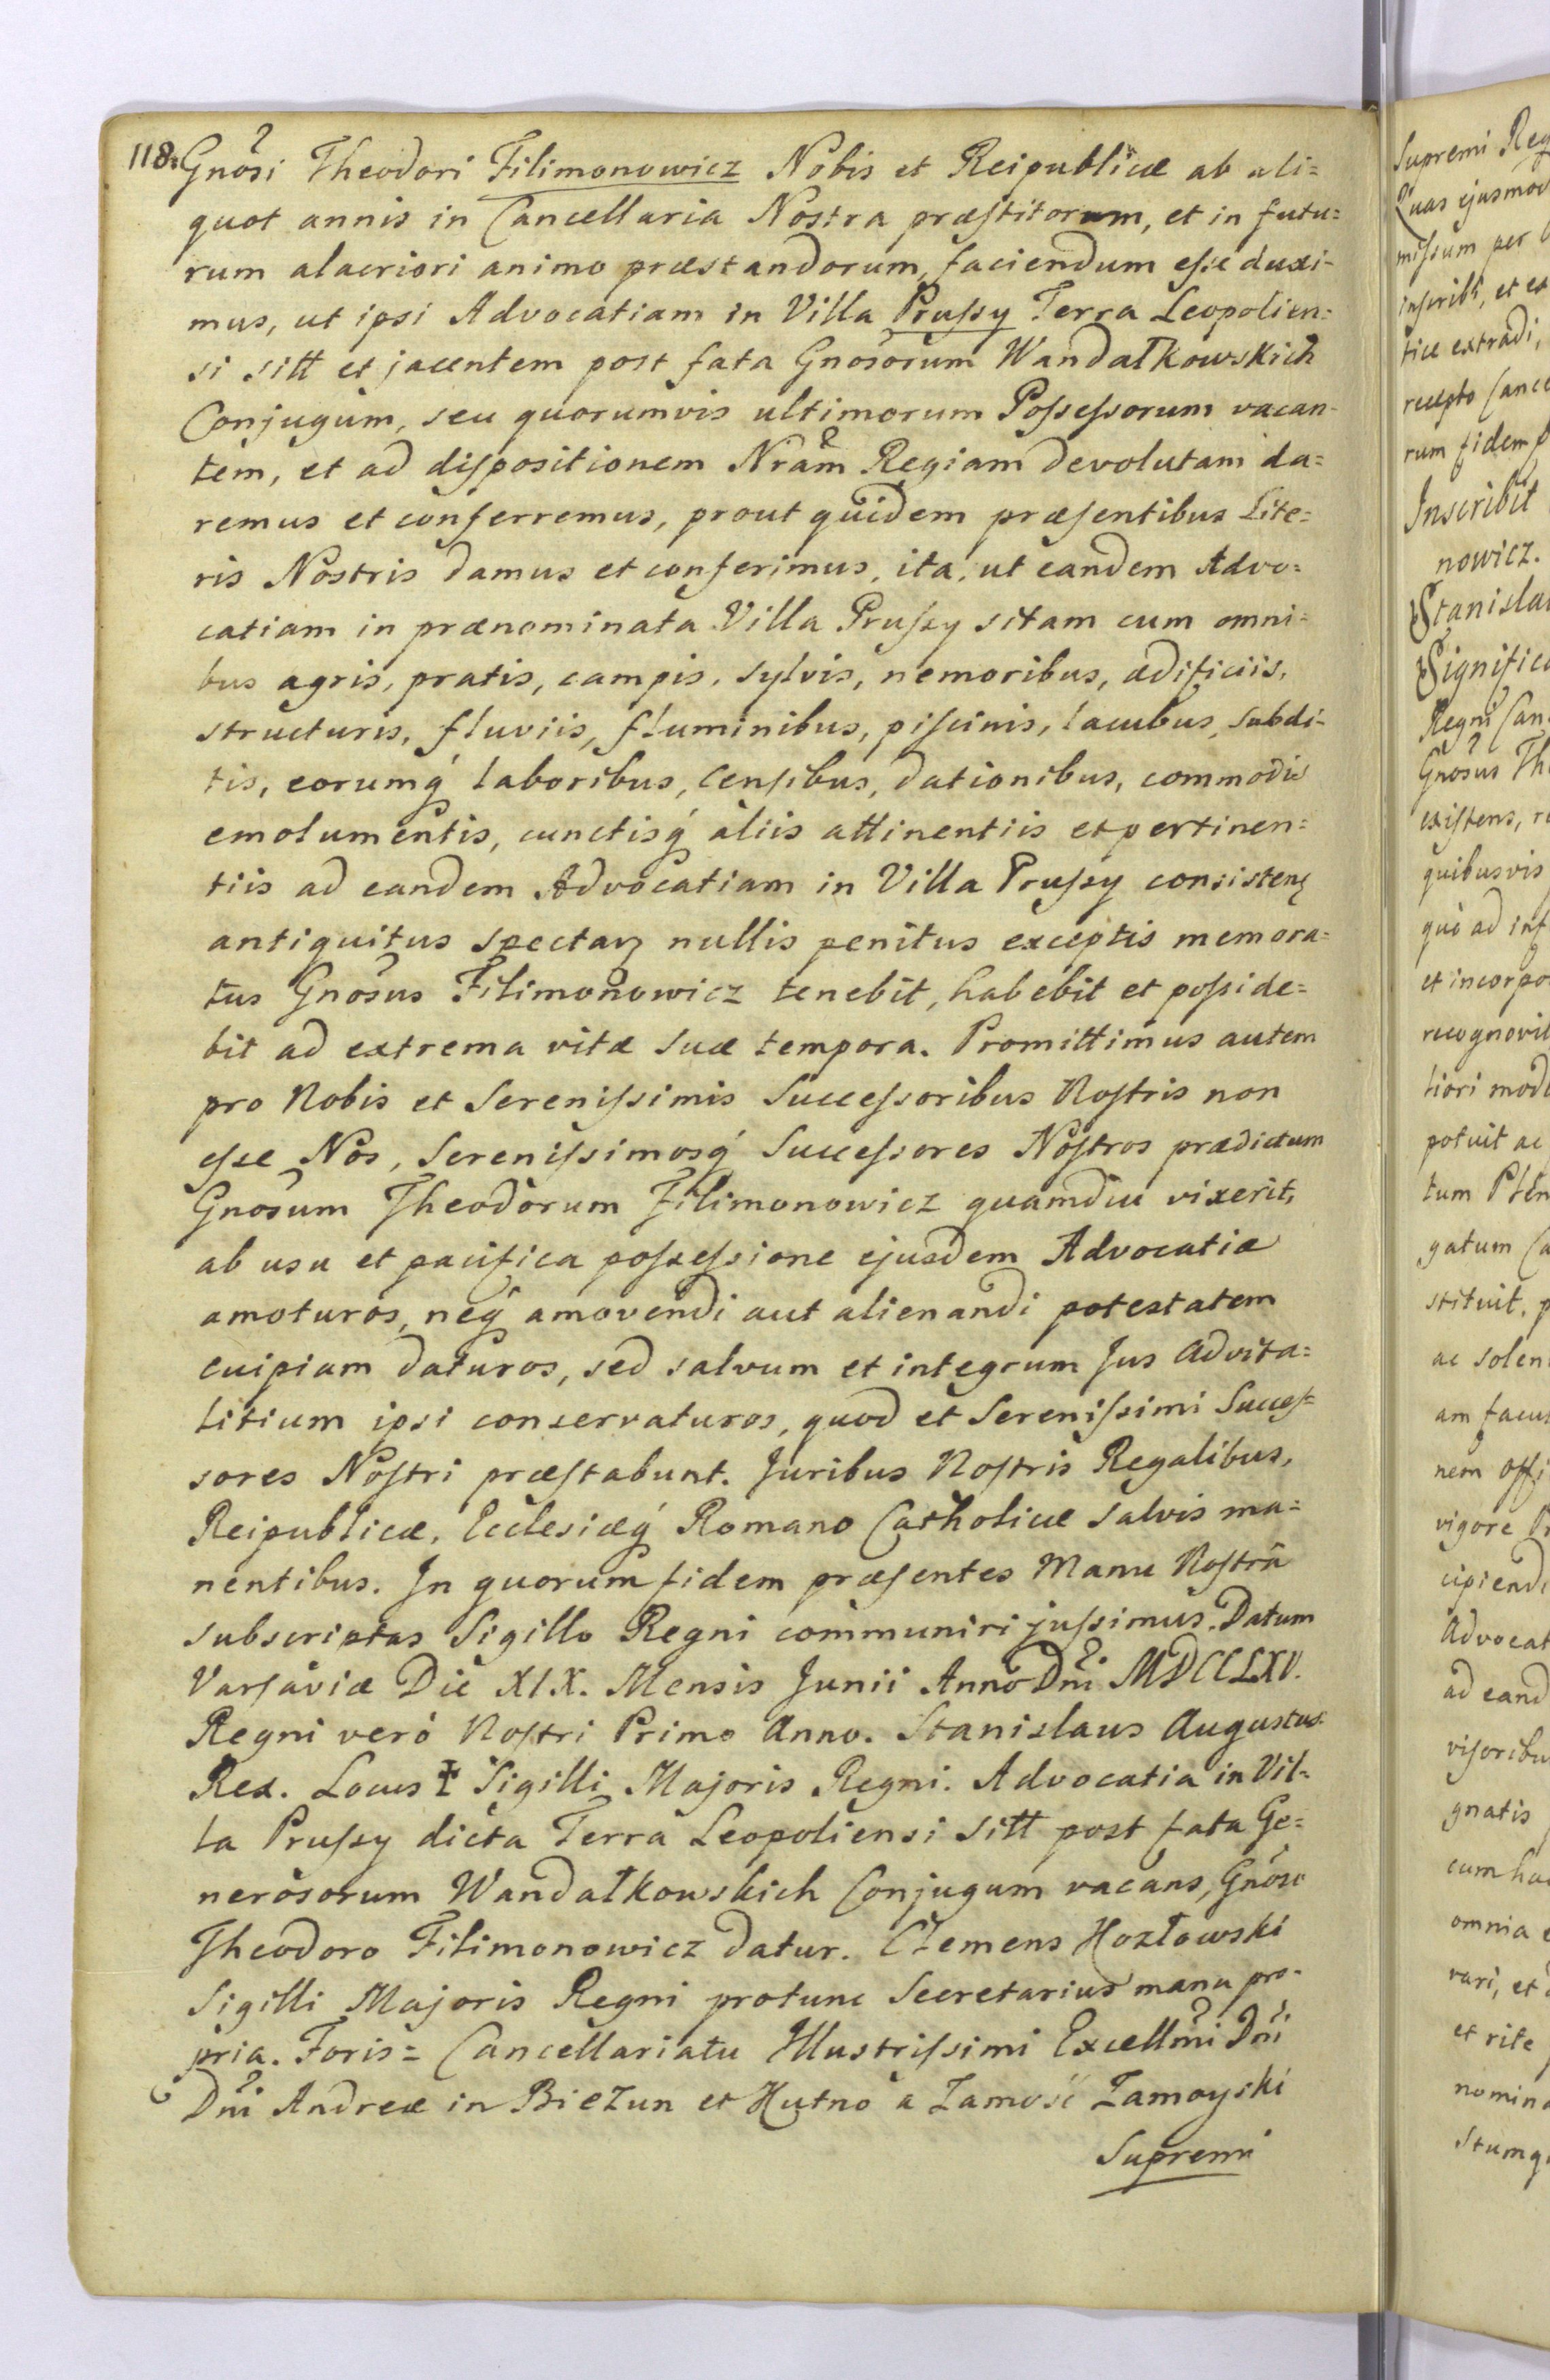 118.
Gnosi Theodori Filimonowicz Nobis et Reipublicæ ab ali=
quot annis in Cancellaria Nostra præstitorum, et in futu=
rum alacriori animo præstandorum, faciendum esse duxi-
mus, ut ipsi Advocatiam in Villa Prussy Terra Leopolien=
si sitt et jacentem post fata Gnosorum Wandałkowskich
Conjugum, seu quorumvis ultimorum Possessorum vacan-
tem, et ad dispositionem Nram Regiam devolutam da=
remus et conferremus, prout quidem præsentibus Lite=
ris Nostris damus et conferimus, ita, ut eandem Advo=
catiam in prænominata Villa Prussy sitam cum omni=
bus agris, pratis, campis, sylvis, nemoribus, ædificiis,
structuris, fluviis, fluminibus, piscinis, lacubus, subdi-
tis, eorumq́ laboribus, Censibus, dationibus, commodis
emolumentis, cunctisq́ aliis attinentiis et pertinen=
tiis ad eandem Advocatiam in Villa Prussy consisten
antiquitus spectan nullis penitus exceptis memora=
tus Gnosus Filimonowicz tenebit, habebit et posside=
bit ad extrema vitæ suæ tempora. Promittimus autem
pro Nobis et Serenissimis Successoribus Nostris non
esse Nos, Serenissimosq́ Successores Nostros prædictum
Gnosum Theodorum Filimonowicz quamdiu vixerit,
ab usu et pacifica possessione ejusdem Advocatiæ
amoturos, neq́ amovendi aut alienandi potestatem
cuipiam daturos, sed salvum et integrum Jus Advita=
litium ipsi conservaturos, quod et Serenissimi Succes=
sores Nostri præstabunt. Juribus Nostris Regalibus,
Reipublicæ, Ecclesiæq́ Romano Catholicæ salvis ma=
nentibus. In quorum fidem præsentes Manu Nostrâ
subscriptas Sigillo Regni communiri jussimus. Datum
Varsaviæ Die XIX. Mensis Junii Anno Dni MDCCLXV.
Regni veró Nostri Primo Anno. Stanislaus Augustus
Rex. Locus ‡ Sigilli Majoris Regni. Advocatia in Vil=
la Prussy dicta Terra Leopoliensi sitt post fata Ge=
nerosorum Wandałkowskich Conjugum vacans, Gnoso
Theodoro Filimonowicz datur. Clemens Kozłowski
Sigilli Majoris Regni protunc Secretarius manu pro-
pria. Foris= Cancellariatu Illustrissimi Excellmi Dni
Dni Andreæ in Biezun et Kutno a Zamość Zamoyski
Supremi
Supremi Reg
Quas ejusmod
missum per
inscribi, et ex
tice extradi,
recepto Cance
rum fidem
Inscribit
nowicz.
Stanislau
Significa
Regni Can
Gnosus Th
existens, re
quibusvis
quò ad inf
et incorpo
recognovit
tiori mod
potuit ac
tum Plen
gatum Ca
stituit, p
ac solen
am facul
nem offi
vigore Pr
cipiendi
Advocat
ad eand
visoribu
gnatis
cum ha
omnia e
vari, et
et rite
nomina
stumq